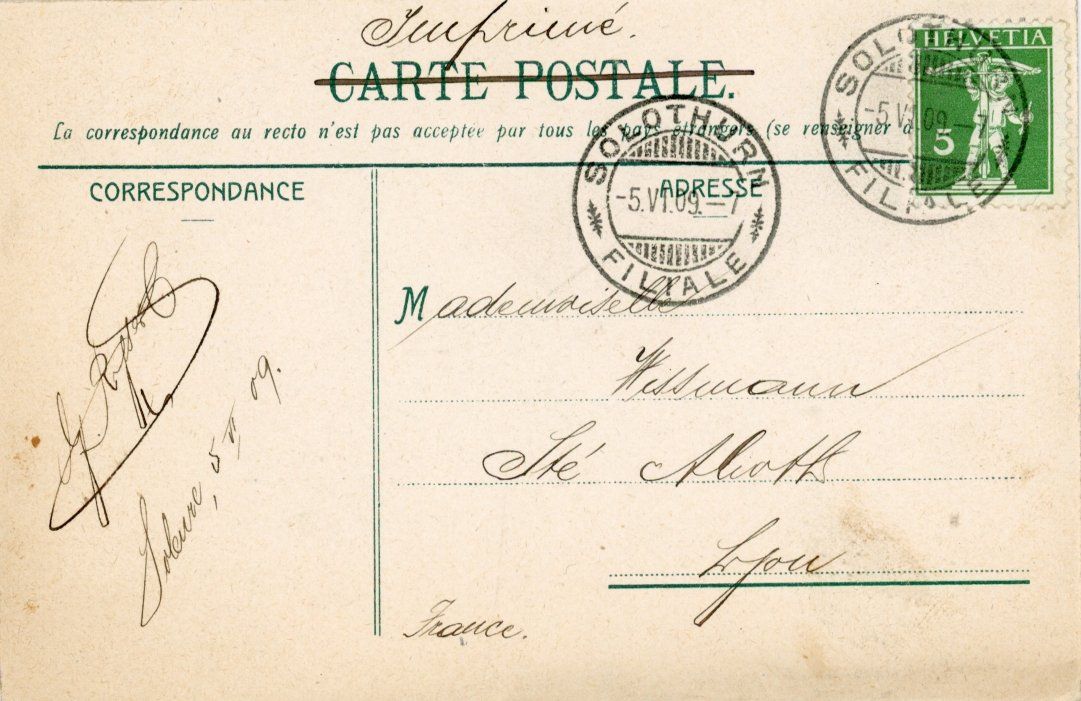 Imprimé.
CARTE POSTALE.
La correspondance au recto n'est pas acceptée par tous les pays étrangers (se renseigner à
HELVETIA
5
SOLOTHURN
-5.VI.09.-7
FILIALE
SOLOTHURN
-5.VI.09.-7
FILIALE
CORRESPONDANCE
ADRESSE
Mademoiselle
Wissmann
Sté Alioth
Lyon
France.
Soleure, 5 VI 09.